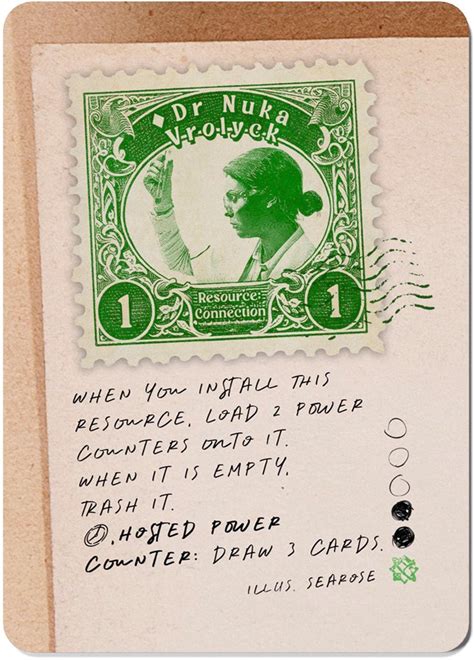 ♦Dr Nuka
Vrolyck
1
Resource:
Connection
1
WHEN YOU INSTALL THIS
RESOURCE, LOAD 2 POWER
COUNTERS ONTO IT.
WHEN IT IS EMPTY,
TRASH IT.
, HOSTED POWER
COUNTER: DRAW 3 CARDS.
ILLUS. SEAROSE